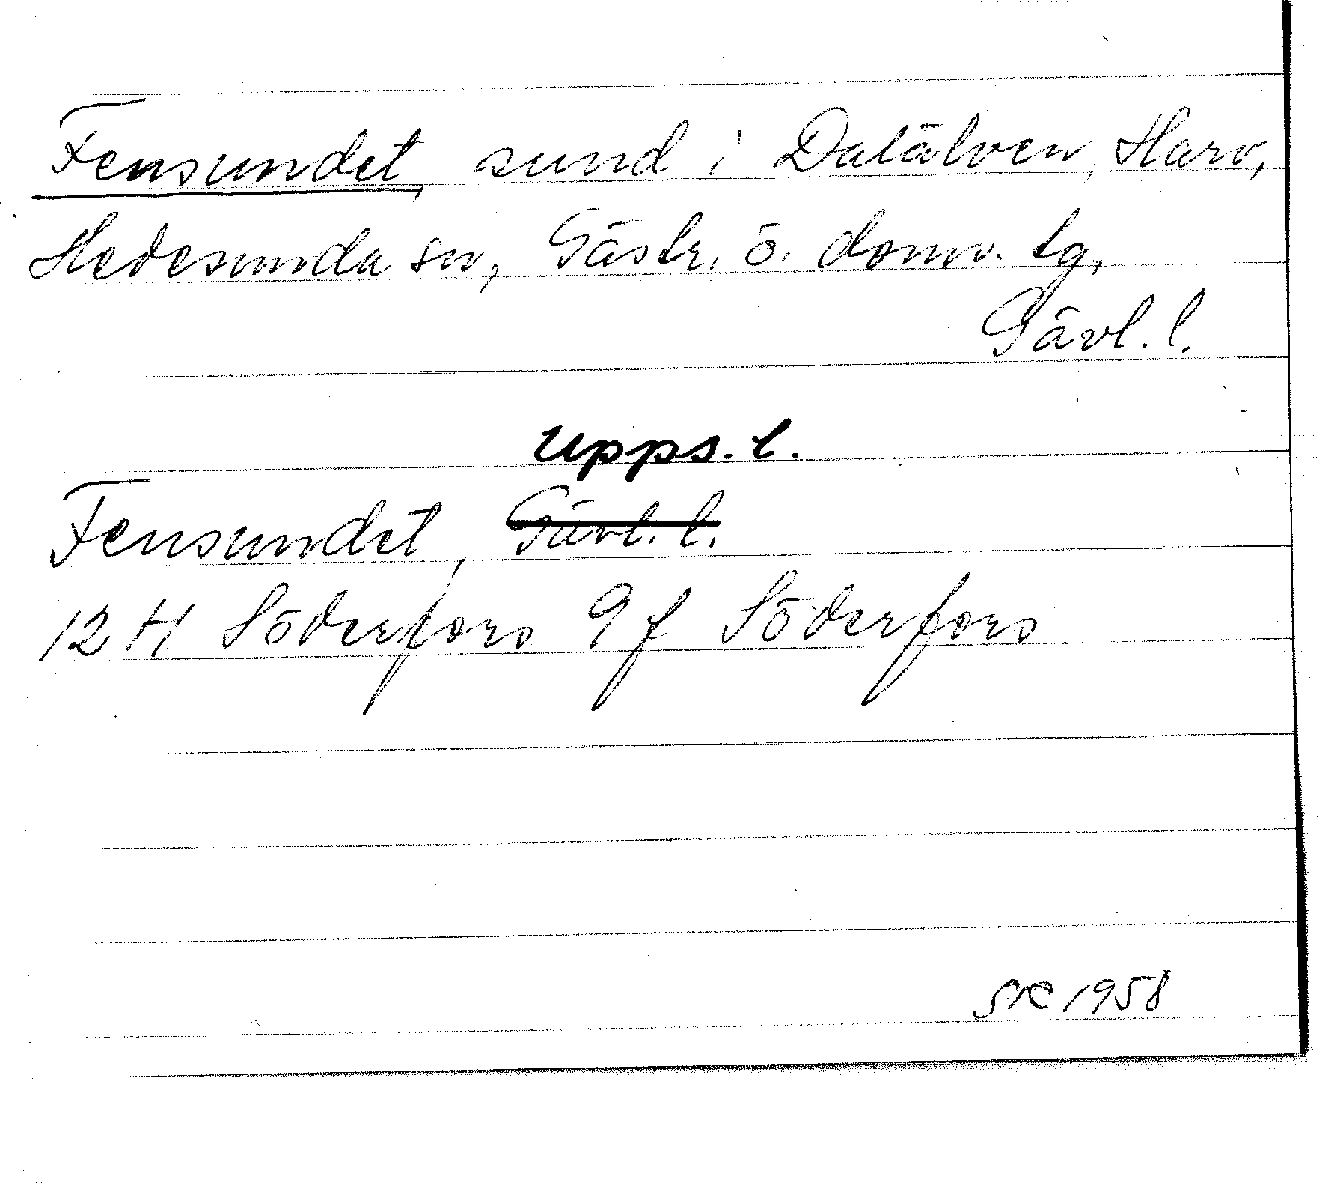 Fensundet, sund i Dalälven, Harv,
Hedesunda sn, Gästr. ö. domv. tg,
Gävl. l.
Upps. l.
Fensundet, Gävl. l.
12 H Söderfors 9 f Söderfors
1958